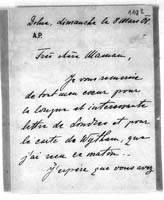 1102
Dohna, dimanche le 8 Mars 08.
A.P.
Très chère Maman,
Je vous remercie
de tout mon cœur pour
la longue et intéressante
lettre de Londres et pour
la carte de Wytham, que
j'ai reçue ce matin.
J'espère que vous avez